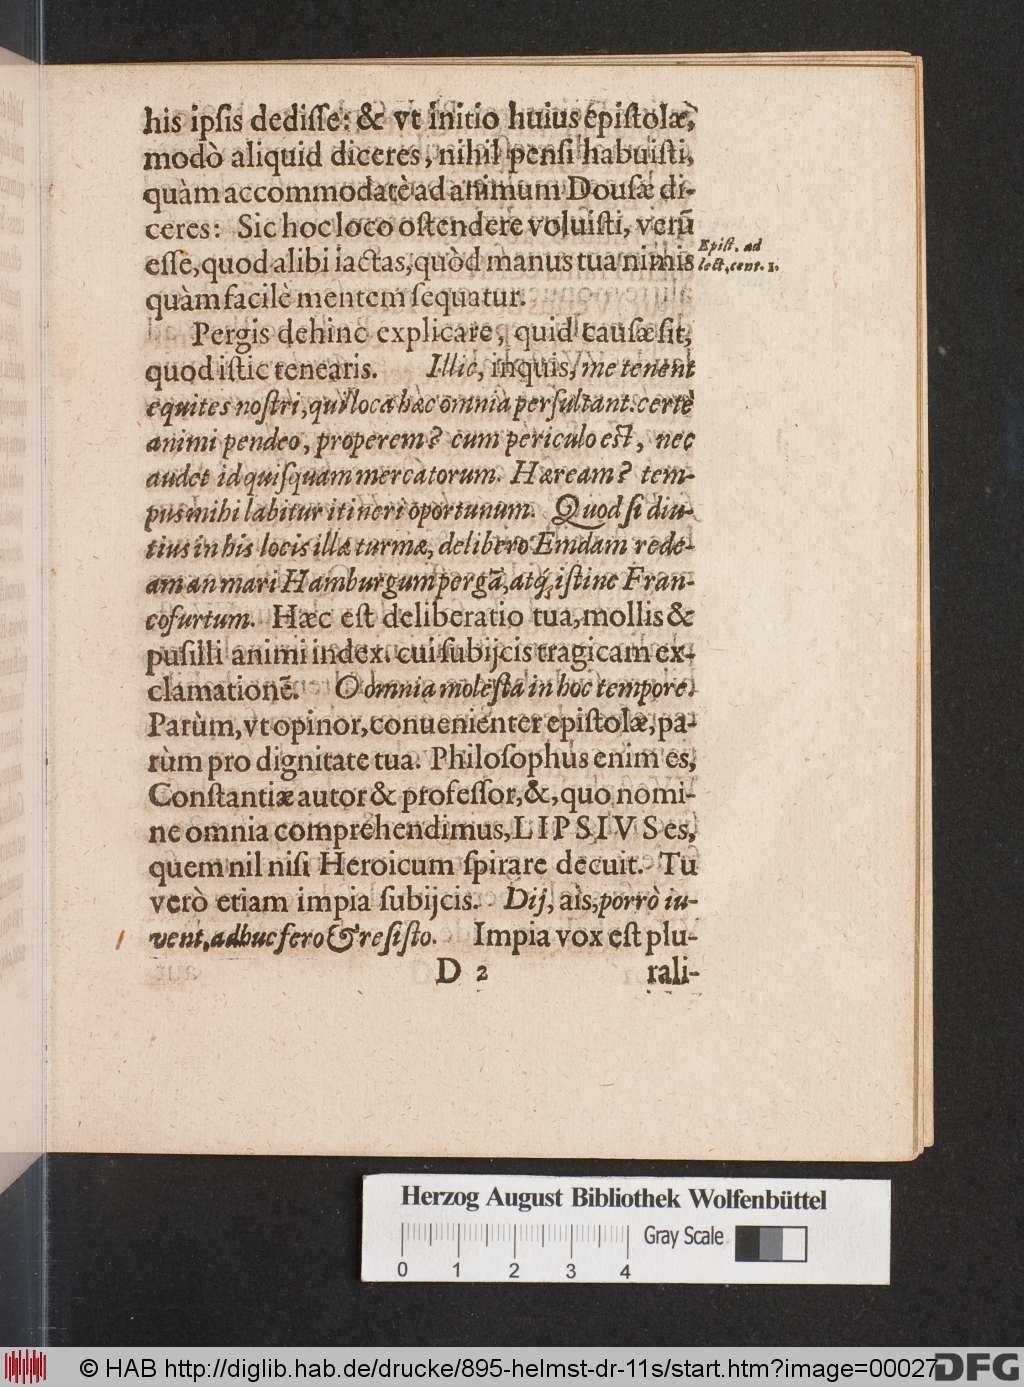 his ipſis dediſſe: & vt initio huius epiſtolæ,
modò aliquid diceres, nihil penſi habuiſti,
quàm accommodatè ad animum Douſæ di-
ceres: Sic hoc loco oſtendere voluiſti, verũ
eſſe, quod alibi iactas, quòd manus tua nimis
Epiſt. ad
lect. cent. 1.
quàm facilè mentem ſequatur.
Pergis dehinc explicare, quid cauſæ ſit,
quod iſtic tenearis. Illic, inquis, me tenent
equites noſtri, qui loca hàc omnia perſultant: certè
animi pendeo, properem? cum periculo eſt, nec
audet id quiſquam mercatorum. Hæream? tem-
pus mihi labitur itineri oportunum. Quod ſi diu-
tius in his locis illæ turmæ, delibero Emdam rede-
am an mari Hamburgum pergã, atq́; iſtinc Fran-
cofurtum. Hæc eſt deliberatio tua, mollis &
puſilli animi index. cui ſubijcis tragicam ex-
clamationẽ. O omnia moleſta in hoc tempore.
Parùm, vt opinor, conuenienter epiſtolæ, pa-
rùm pro dignitate tua. Philoſophus enim es,
Conſtantiæ autor & profeſſor, &, quo nomi-
ne omnia comprehendimus, LIPSIVS es,
quem nil niſi Heroicum ſpirare decuit. Tu
verò etiam impia ſubijcis. Dij, ais, porrò iu-
vent, adhuc fero & reſiſto. Impia vox eſt plu-
D 2 rali-
Herzog August Bibliothek Wolfenbüttel
Gray Scale
0 1 2 3 4
© HAB http://diglib.hab.de/drucke/895-helmst-dr-11s/start.htm?image=00027
DFG